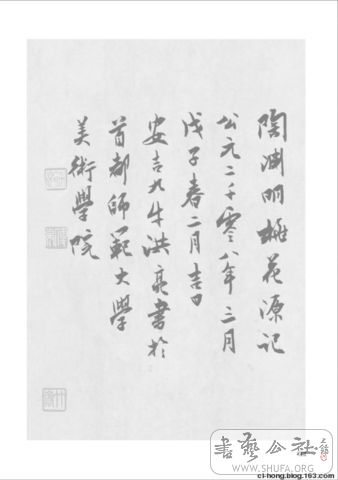 陶渊明桃花源记
公元二千零八年三月
戊子春二月吉日
安吉九牛洪亮書於
首都師範大學
美術學院
書藝公社
WWW.SHUFA.ORG
cl-hong.blog.163.com